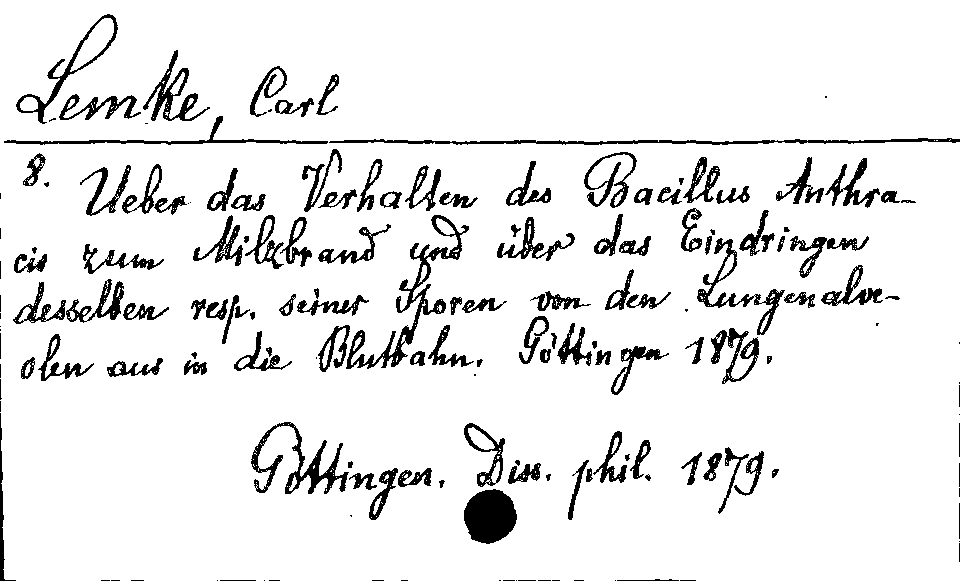 Lemke, Carl
8. Ueber das Verhalten des Bacillus Anthra-
cis zum Milzbrand und über das Eindringen
desselben resp. seiner Sporen von den Lungenalve-
olen aus in die Blutbahn. Göttingen 1879.
Göttingen. Diss. phil. 1879.